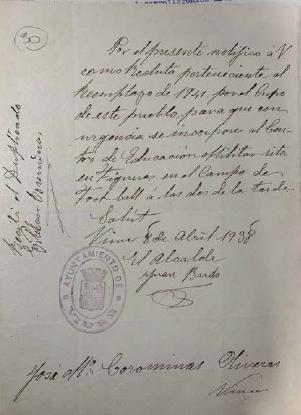 Por el presente notifico á V
como Recluta perteneciente al
Reemplazo de 1941 por el Cupo
de este pueblo, para que con
urgencia se incorpore al Cen-
tro de Educación Militar sita
en Figueras, en el Campo de
Foot-ball á las dos de la tarde.
Salut
8 de Abril 1938
El Alcalde
Juan
AYUNTAMIENTO DE
Recibí el Duplicado
José Mª Corominas Oliveras